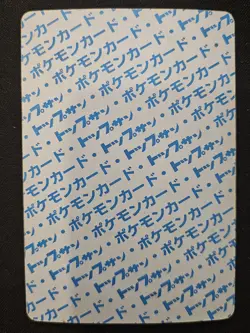 ポケモンカード・
トップサン・ポケモンカード・
ポケモンカード・トップサン・
トップサン・ポケモンカード・
ポケモンカード・トップサン・
トップサン・ポケモンカード・
ポケモンカード・トップサン・
トップサン・ポケモンカード・
ポケモンカード・トップサン・
トップサン・ポケモンカード・
ポケモンカード・トップサン・
トップサン・ポケモンカード・
ポケモンカード・
トップサン・